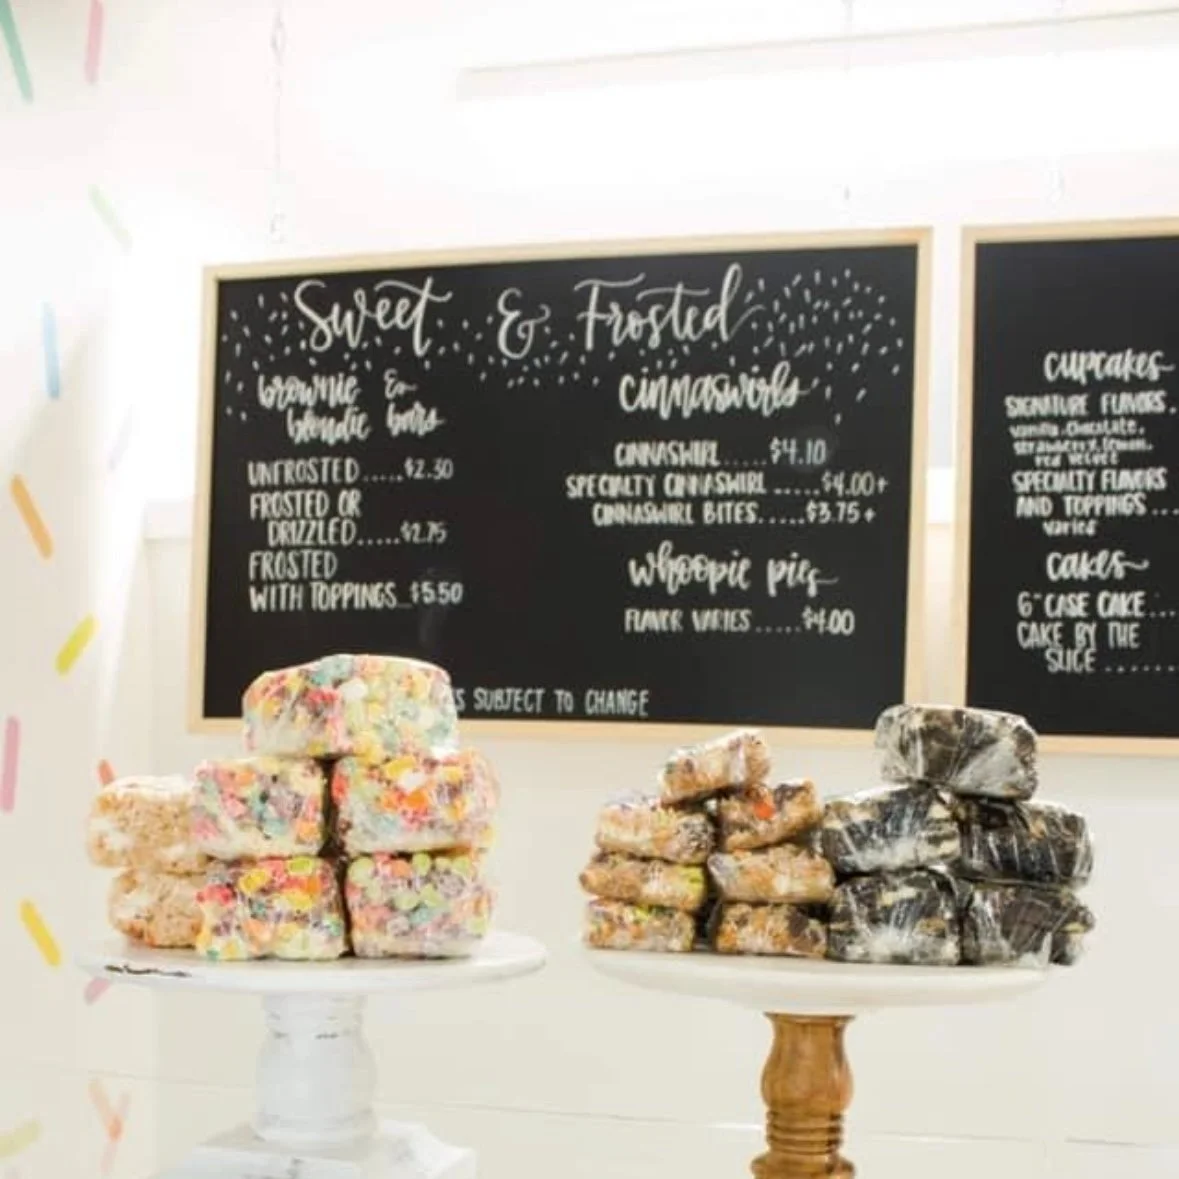 Sweet & Frosted
brownie &
blondie bars
UNFROSTED.....$2.30
FROSTED OR
DRIZZLED.....$2.75
FROSTED
WITH TOPPINGS...$5.50
cinnaswirls
CINNASWIRL.....$4.10
SPECIALTY CINNASWIRL.....$4.00+
CINNASWIRL BITES.....$3.75+
whoopie pies
FLAVOR VARIES.....$4.00
SUBJECT TO CHANGE
cupcakes
SIGNATURE FLAVORS.
vanilla, chocolate,
strawberry, lemon,
red velvet
SPECIALTY FLAVORS
AND TOPPINGS...
varied
cakes
6" CASE CAKE...
CAKE BY THE
SLICE.......